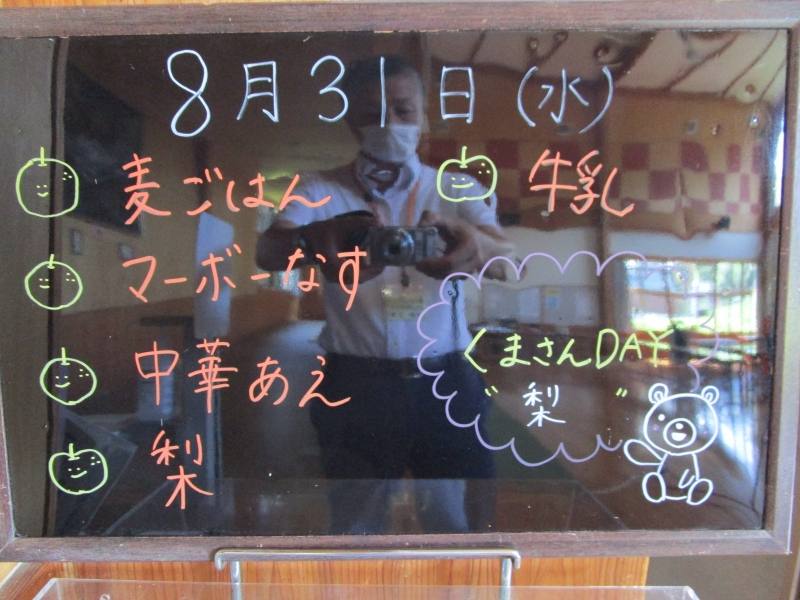 8月31日(水)
麦ごはん
マーボーなす
中華あえ
梨
牛乳
くまさんDAY
〃梨〃